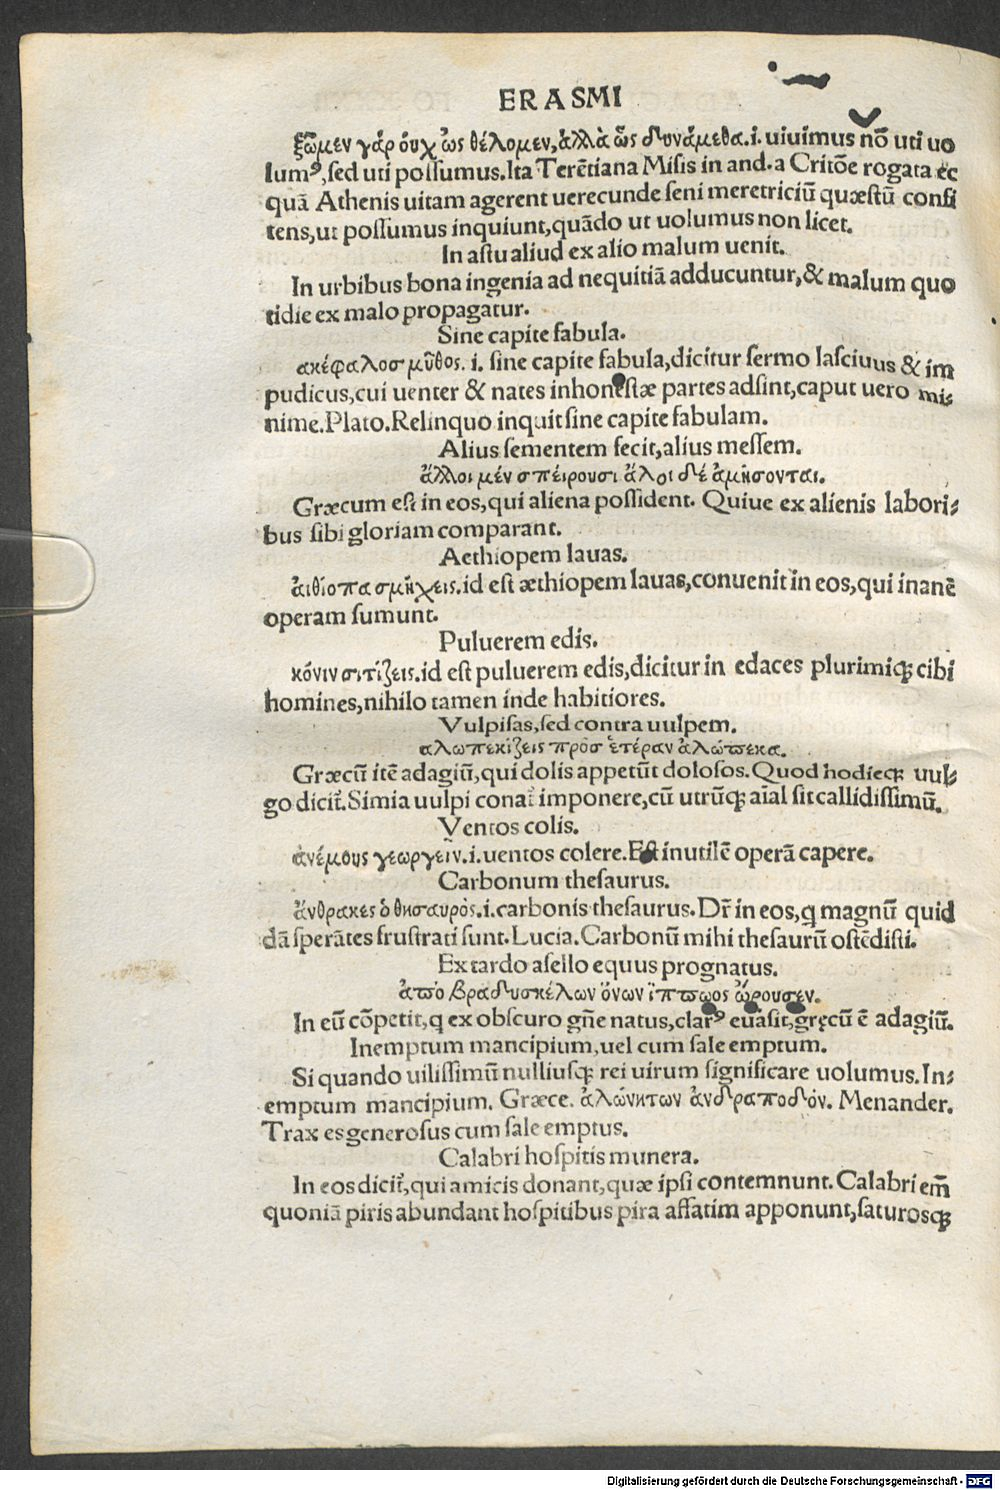 ERASMI
ξῶμεν γάρ ὀυχ ὧς θέλομεν, ἀλλὰ ὧς δυνάμεθα.i. uiuimus nõ uti uo
lumꝰ, sed uti possumus. Ita Terẽtiana Misis in and. a Critõe rogata ec
quã Athenis uitam agerent uerecunde seni meretriciũ quæstũ confi
tens, ut possumus inquiunt, quãdo ut uolumus non licet.
In astu aliud ex alio malum uenit.
In urbibus bona ingenia ad nequitiã adducuntur, & malum quo
tidie ex malo propagatur.
Sine capite fabula.
ακέφαλοσ μῦθος. i. sine capite fabula, dicitur sermo lasciuus & im
pudicus, cui uenter & nates inhonestæ partes adsint, caput uero mi-
nime. Plato. Relinquo inquit sine capite fabulam.
Alius sementem fecit, alius messem.
ἄλλοι μέν σπέιρουσι ἄλοι δέ ἀμήσονται.
Græcum est in eos, qui aliena possident. Quiue ex alienis labori-
bus sibi gloriam comparant.
Aethiopem lauas.
ἀιθίοπα σμήχεις. id est æthiopem lauas, conuenit in eos, qui inanẽ
operam sumunt.
Puluerem edis.
κόνιν σιτίζεις. id est puluerem edis, dicitur in edaces plurimiqꝫ cibi
homines, nihilo tamen inde habitiores.
Vulpisas, sed contra uulpem.
αλωπεκίζεις πρὸσ ἑτέραν ἀλώπεκα.
Græcũ itẽ adagiũ, qui dolis appetũt dolosos. Quod hodieqꝫ uul-
go dicit᷑. Simia uulpi conat᷑ imponere, cũ utrũqꝫ aĩal sit callidissimũ.
Ventos colis.
ἀνέμους γεωργεῖν. i. uentos colere. Est inutilẽ operã capere.
Carbonum thesaurus.
ἄνθρακες ὁ θησαυρὸς. i. carbonis thesaurus. Dr̃ in eos, q magnũ quid
dã sperãtes frustrati sunt. Lucia. Carbonũ mihi thesaurũ ostẽdisti.
Ex tardo asello equus prognatus.
ἀπὸ βραδυσκέλων ὄνων ἵππωος ὥρουσεν.
In eũ cõpetit, q ex obscuro gñe natus, clarꝰ euasit, gręcũ ẽ adagiũ.
Inemptum mancipium, uel cum sale emptum.
Si quando uilissimũ nulliusqꝫ rei uirum significare uolumus. In-
emptum mancipium. Græce. ἀλώνητων ἀνδραποδόν. Menander.
Trax es generosus cum sale emptus.
Calabri hospitis munera.
In eos dicit᷑, qui amicis donant, quæ ipsi contemnunt. Calabri em̃
quoniã piris abundant hospitibus pira affatim apponunt, saturosqꝫ
Digitalisierung gefördert durch die Deutsche Forschungsgemeinschaft - DFG